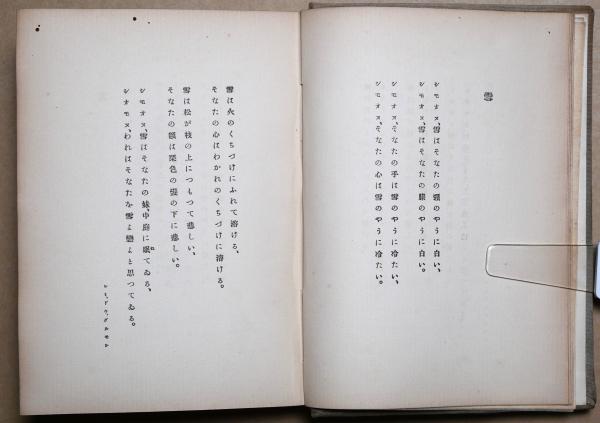 雪
シモオヌ、雪はそなたの頸のやうに白い、
シモオヌ、雪はそなたの膝のやうに白い。
シモオヌ、そなたの手は雪のやうに冷たい、
シモオヌ、そなたの心は雪のやうに冷たい。
雪は火のくちづけにふれて溶ける、
そなたの心はわかれのくちづけに溶ける。
雪は松が枝の上につもつて悲しい、
そなたの額は栗色の髪の下に悲しい。
シモオヌ、雪はそなたの妹、中庭に眠てゐる。
シモオヌ、われはそなたを雪よ戀よと思つてゐる。
レミ、ドウ、グルモン